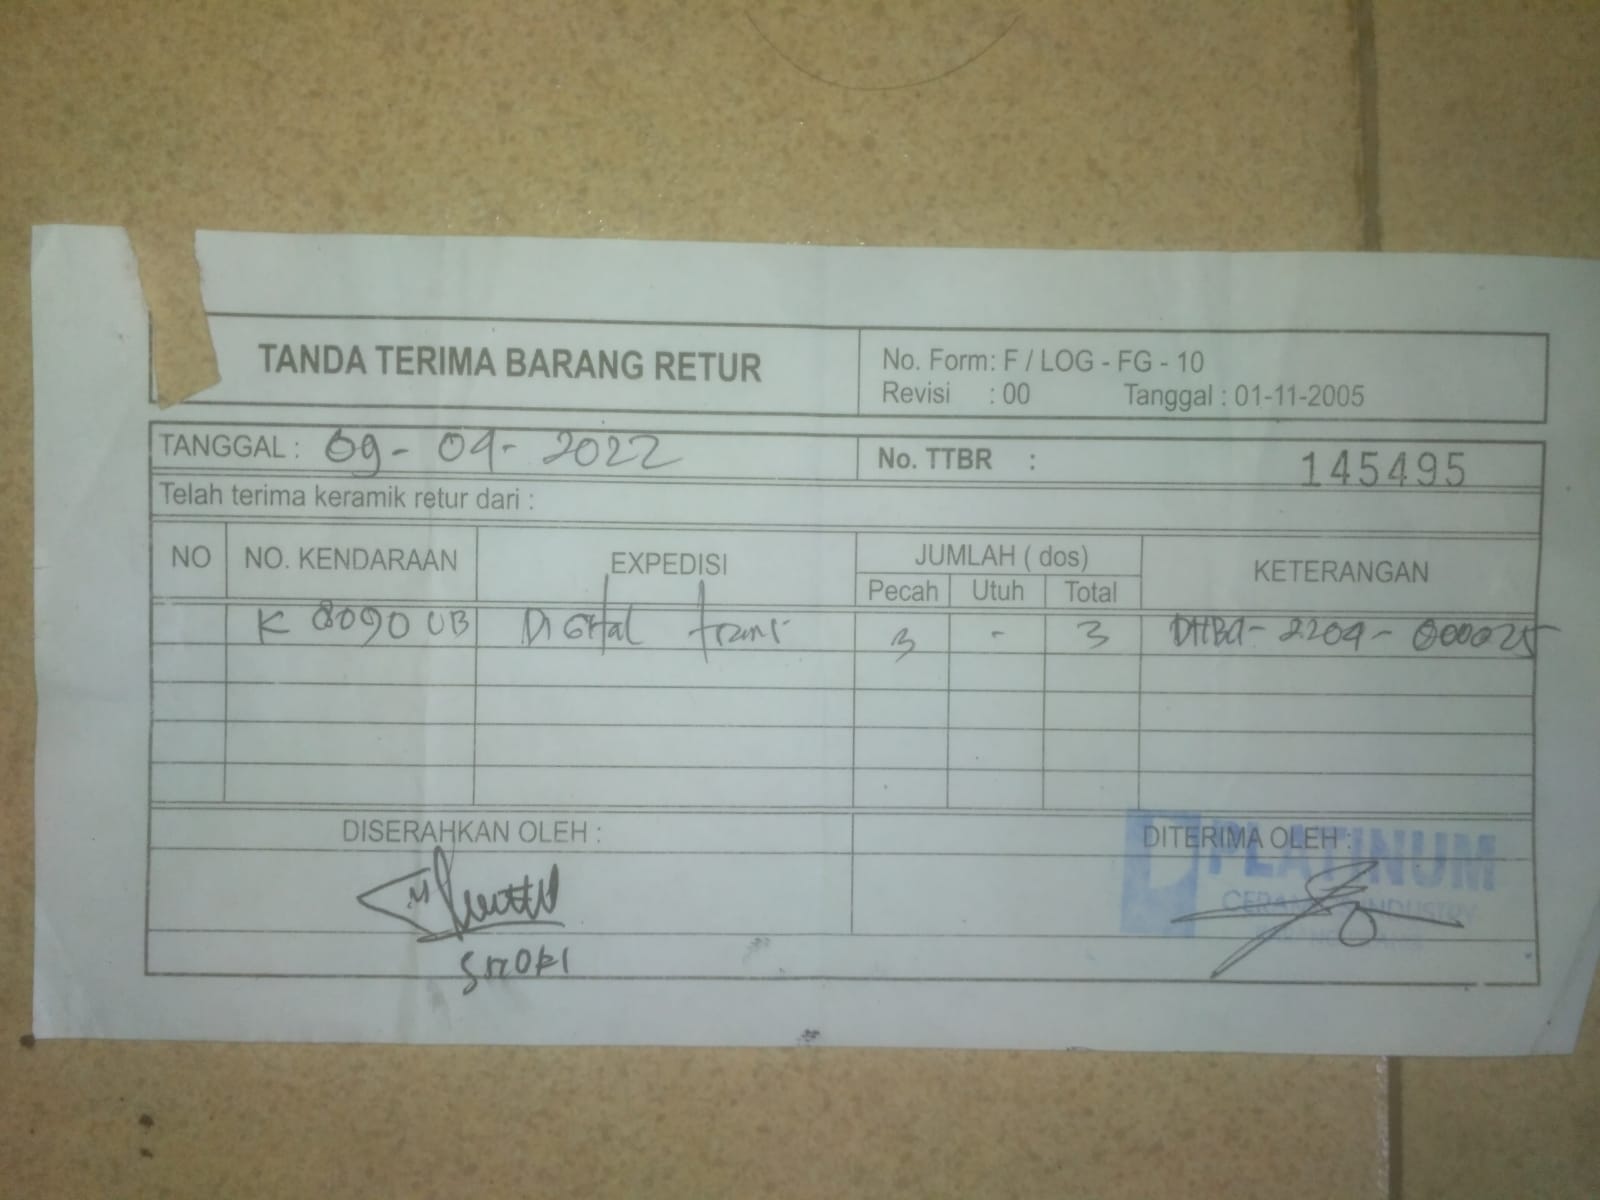 TANDA TERIMA BARANG RETUR
No. Form: F / LOG - FG - 10
Revisi : 00 Tanggal : 01-11-2005
TANGGAL : 09 - 04 - 2022
No. TTBR : 145495
Telah terima keramik retur dari :
NO NO. KENDARAAN EXPEDISI JUMLAH ( dos) KETERANGAN
Pecah Utuh Total
K 8090 UB Digital trans 3 - 3 2204 - 000025
DISERAHKAN OLEH : DITERIMA OLEH :
PLATINUM
CERAMICS INDUSTRY